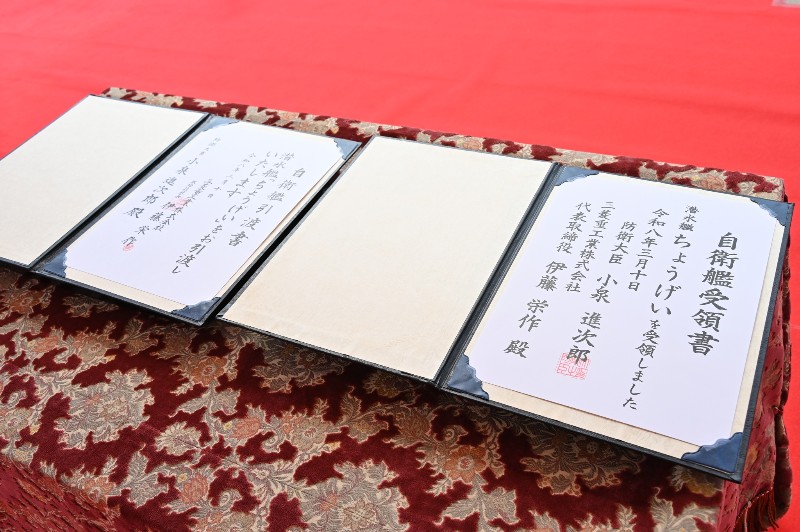 自衛艦引渡書
潜水艦ちょうげいをお引渡し
いたします
三菱重工業株式会社
伊藤栄作
小泉進次郎殿
自衛艦受領書
潜水艦ちょうげいを受領しました
令和八年三月十日
防衛大臣 小泉 進次郎
三菱重工業株式会社
代表取締役 伊藤 栄作 殿